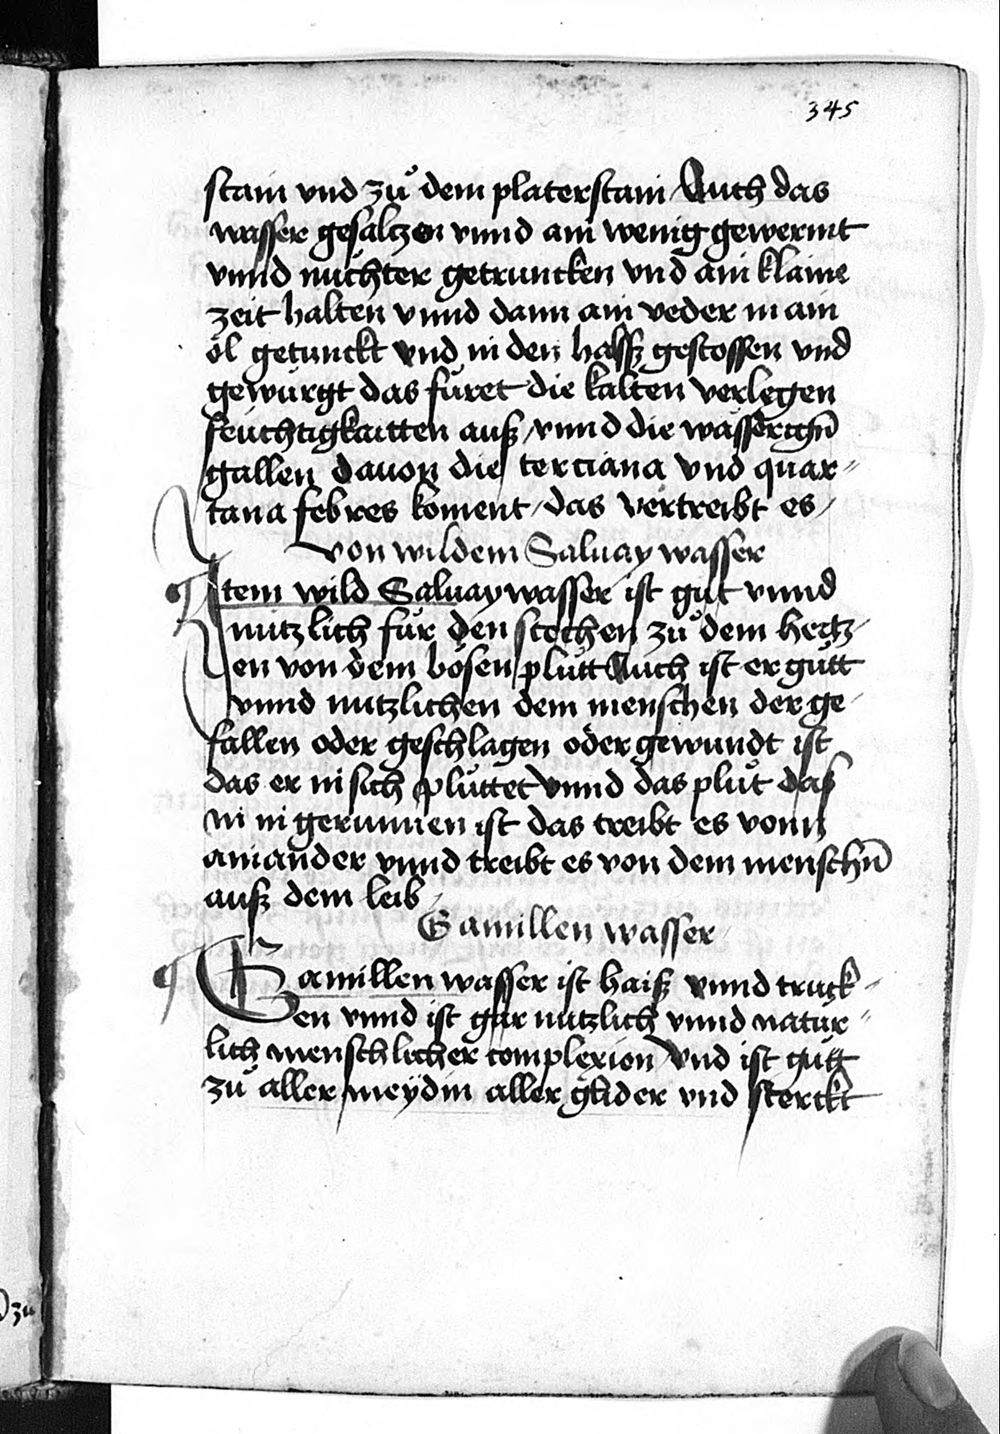 345
stain vnd zuͦ dem platerstain Auch das
wasser gesaltzen vnnd ain wenig gewermt
vnnd nuͤchter getruncken vnd ain klaine
zeit halten vnnd dann ain veder in ain
oͤl getunckt vnd in den halsß gestossen vnd
gewuͤrgt das fuͤret die kalten verlegen
feuchtigkaitten auß / vnnd die wasserign̄
gallen dauon die terciana vnd quar⸗
tana febres koment / das vertreibt es /
von wildem Saluay wasser
Item wild Saluay wasser ist guͦt vnnd
nutzlich fuͤr den stechen zuͦ dem hertz⸗
en von dem boͤsen pluͦtt Auch ist er guͦtt
vnnd nutzlichen dem menschen der ge⸗
fallen oder geschlagen oder gewundt ist
das er in sich pluͦttet vnnd das pluͦt das
in in gerunnen ist das treibt es vonn
ainander vnnd treibt es von dem menschn̄
auß dem leib
Gamillen wasser
Gamillen wasser ist haiß vnnd truck⸗
en vnnd ist gar nutzlich vnnd natuͤr⸗
lich menschlicher complexion vnd ist guͦtt
zuͦ aller meydin aller glider vnd sterckt
zu